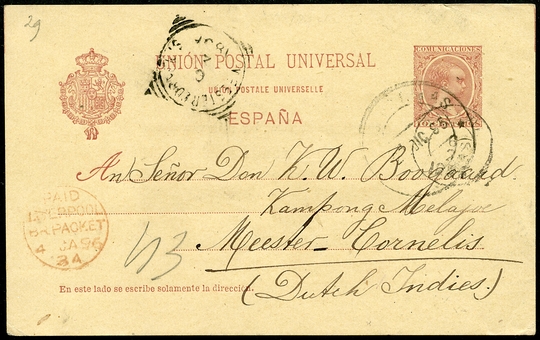 29
UNIÓN POSTAL UNIVERSAL
UNION POSTALE UNIVERSELLE
ESPAÑA
COMUNICACIONES
An Señor Don K. W. Boogaard
Kampong Melajoe
Meester-Cornelis
(Dutch Indies.)
PAID
LIVERPOOL
BR. PACKET
4 JA 96
3A
En este lado se escribe solamente la dirección.